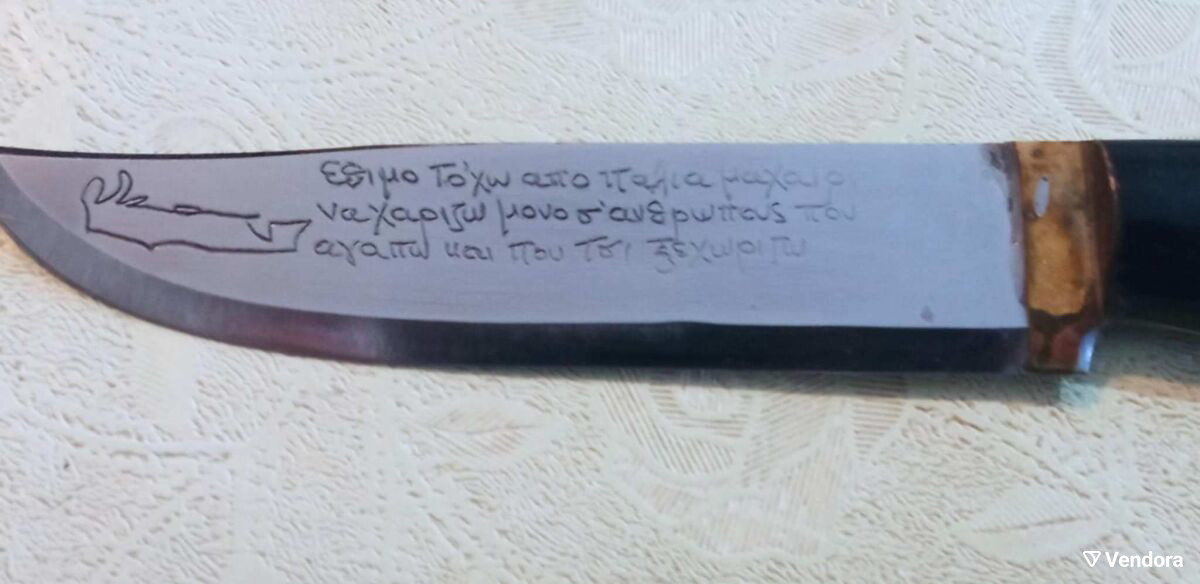 εθιμο τό'χω απο παλια μαχαιρι
να χαριζω μονο σ'ανθρωπους που
αγαπω και που τσι ξεχωριζω
Vendora